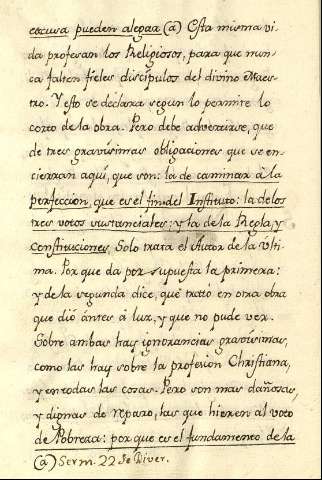 escusa pueden alegar (a) Esta misma vi-
da profesan los Religiosos, para que nun-
ca falten fieles discipulos del divino Maes-
tro. Y esto se declara segun lo permite lo
corto de la obra. Pero debe advertirse, que
de tres gravisimas obligaciones que se en-
cierran aquí, que son: la de caminar à la
perfeccion, que es el fin del Instituto: la de los
tres votos sustanciales: y la de la Regla, y
Constituciones, Solo trata el Autor de la ulti-
ma. Por que da por supuesta la primera:
y de la segunda dice, que trató en otra obra
que dió ántes á luz, y que no pude ver.
Sobre ambas hay ignorancias gravisimas,
como las hay sobre la profesion Christiana,
y en todas las cosas. Pero son mas dañosas,
y dignas de reparo, las que hieren al voto
de Pobreza: por que es el fundamento de la
(a) Serm. 22 de Diver.